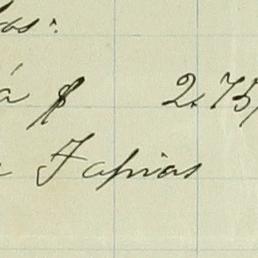 os:
á $ 2.75
Tapias